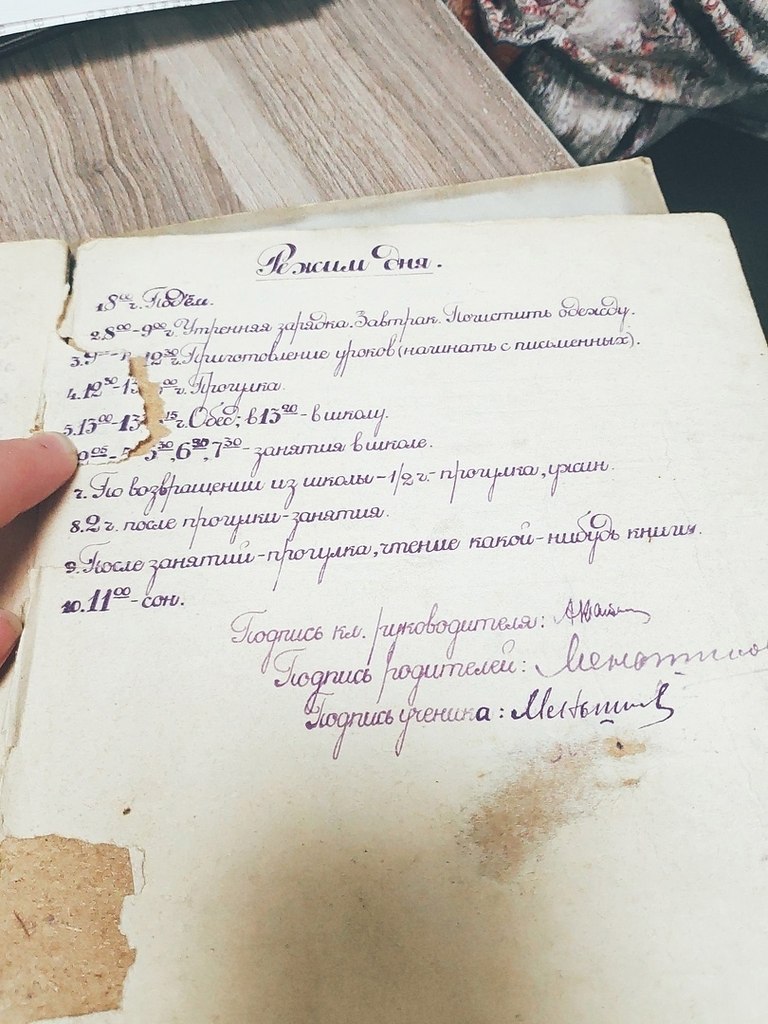 Режим дня.
1. 8⁰⁰ ч. Подъём.
2. 8⁰⁰-9⁰⁰ ч. Утренняя зарядка. Завтрак. Почистить одежду.
3. 12³⁰ ч. Приготовление уроков (начинать с письменных).
4. 12³⁰-13⁰⁰ ч. Прогулка.
5. 13⁰⁰-13¹⁵ ч. Обед; в 13²⁰ - в школу.
6³⁰, 7³⁰ - занятия в школе.
7. По возвращении из школы - 1/2 ч. - прогулка, ужин.
8. 2 ч. после прогулки - занятия.
9. После занятий - прогулка, чтение какой-нибудь книги.
10. 11⁰⁰ - сон.
Подпись кл. руководителя:
Подпись родителей:
Подпись ученика: